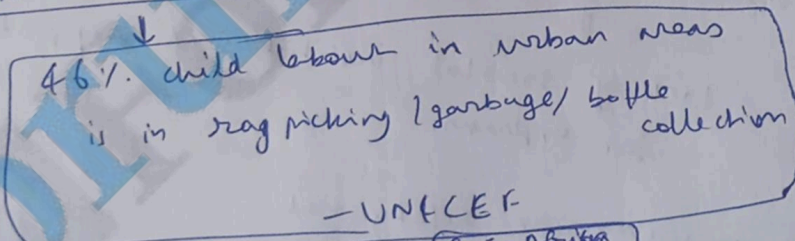 46%. child labour in urban areas
is in rag picking / garbage / bottle
collection
- UNICEF